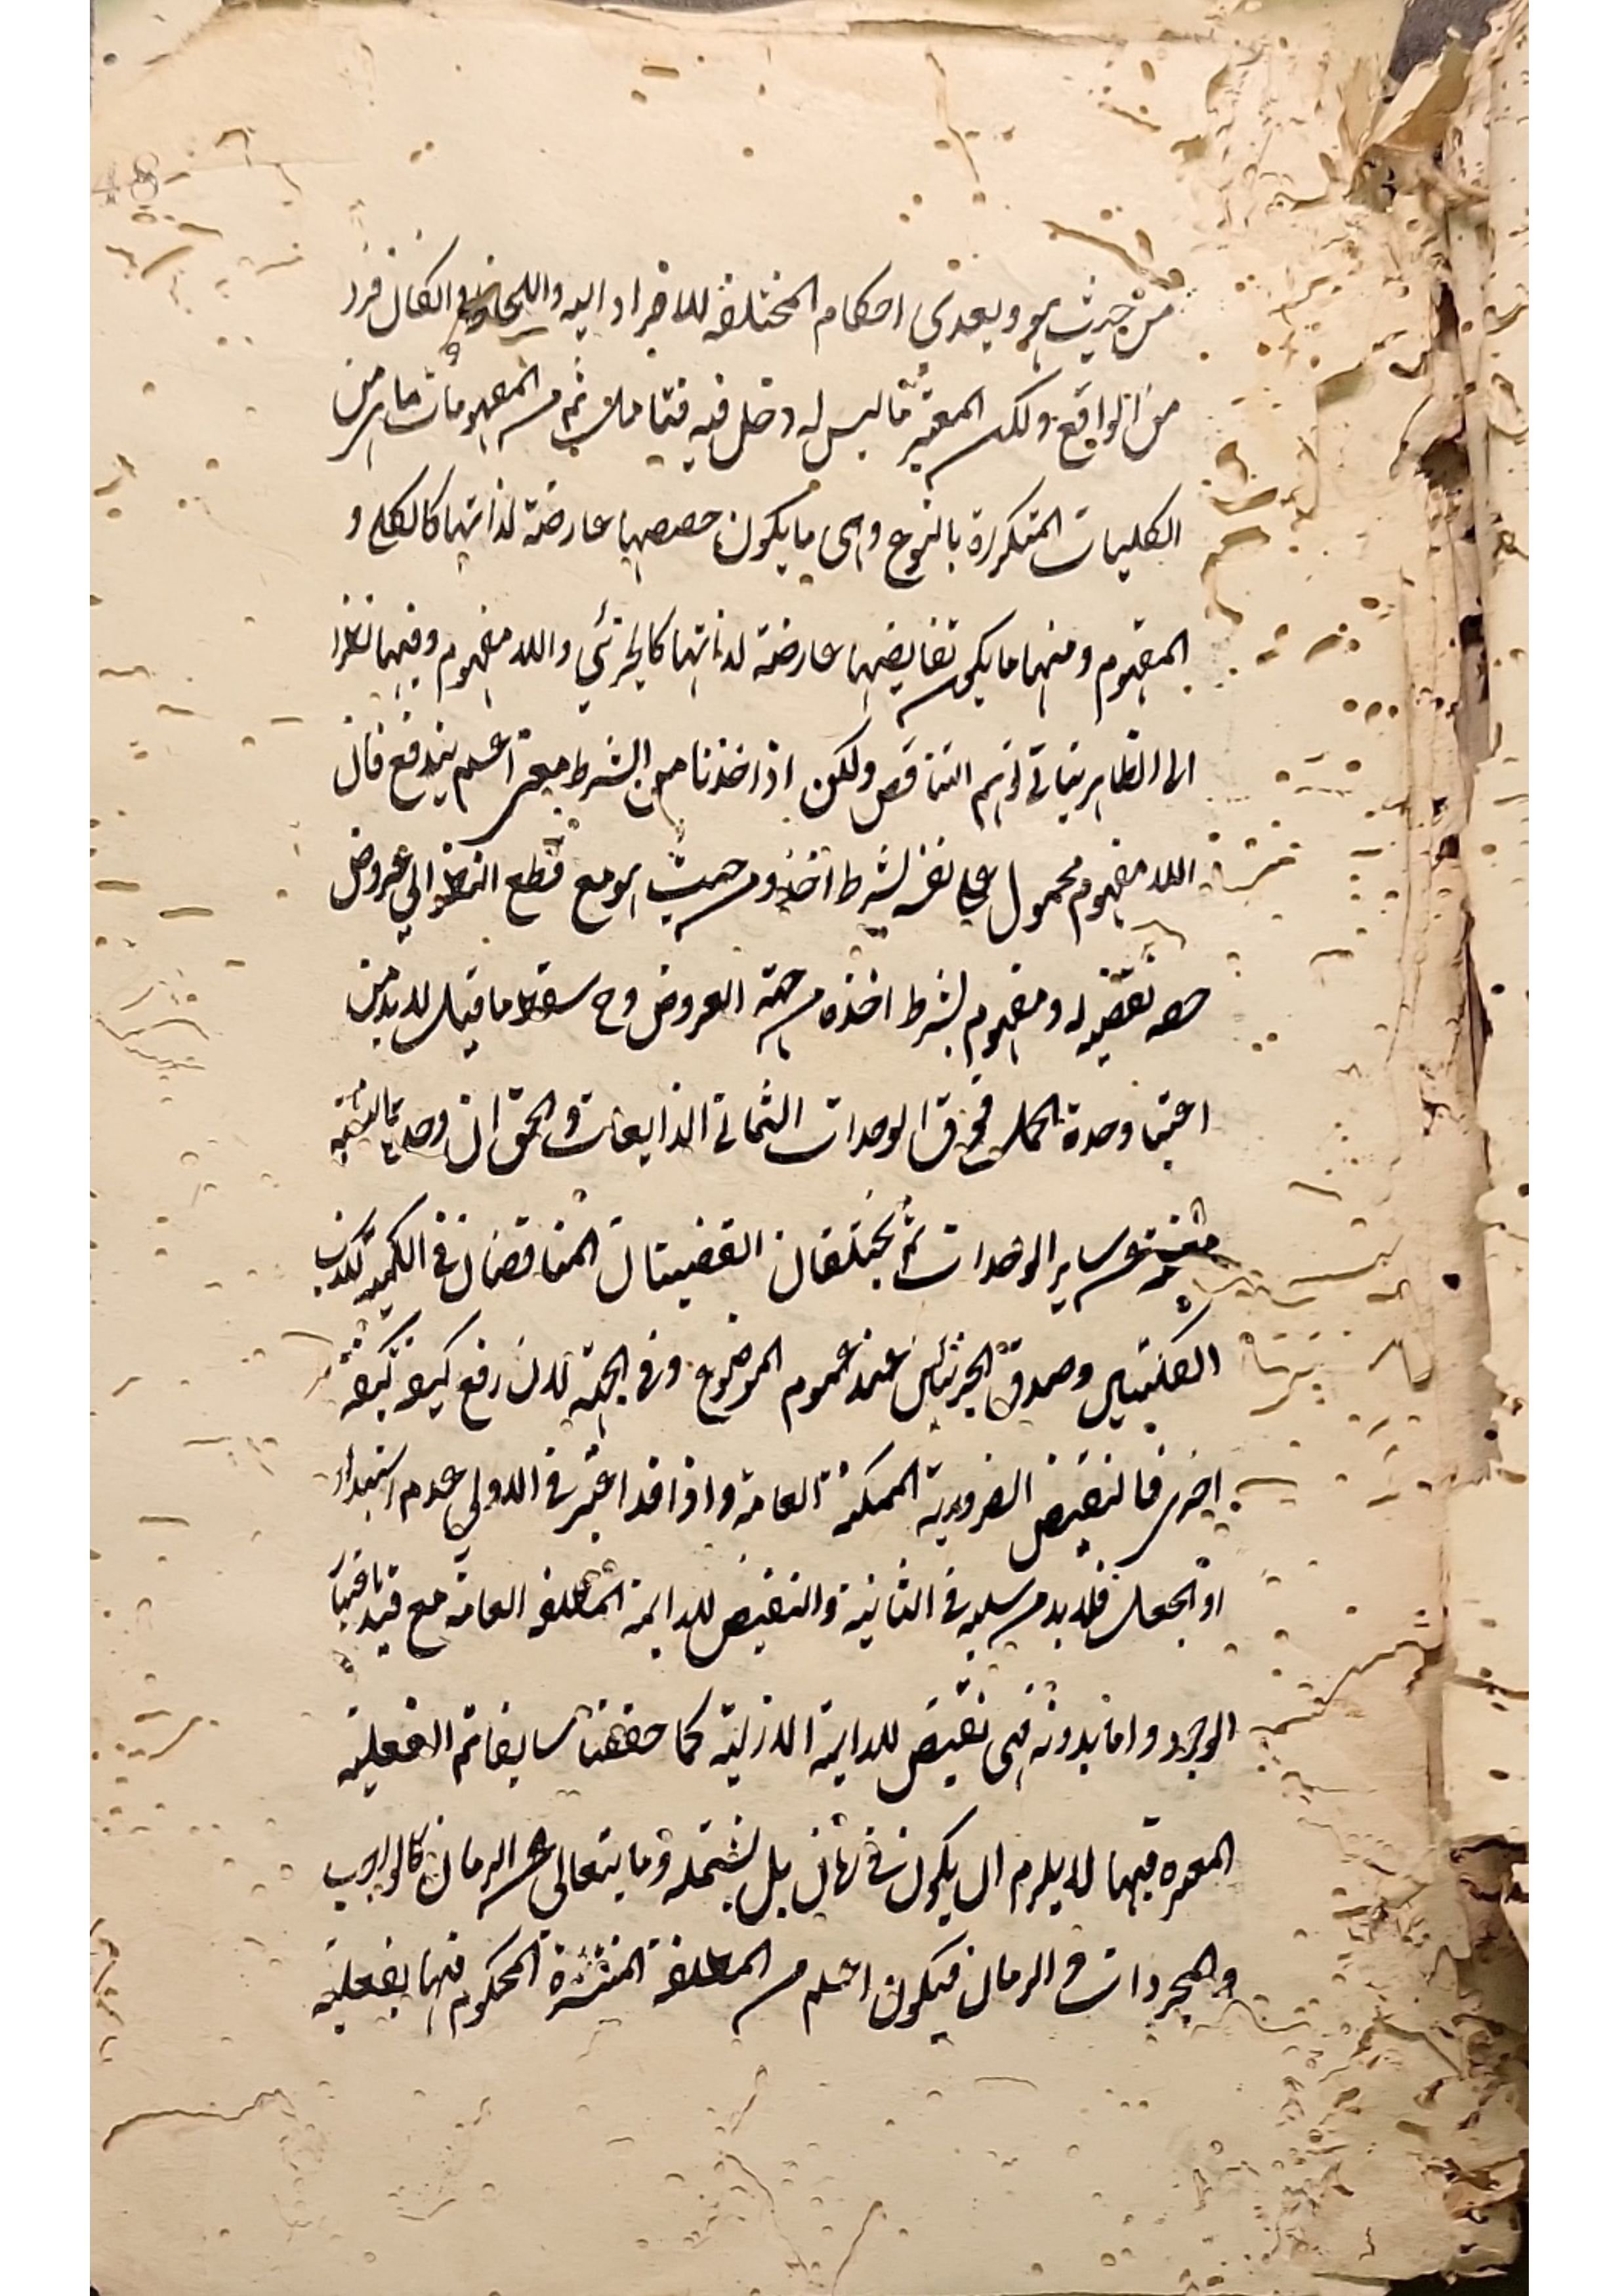 48
من حيث هو ويعدى احكام المختلفة للافراد اليه واللحاظ وان كان فرد
من الواقع ولكن المعتبر ما ليس له دخل فيه فتامل ثم من المفهومات ما هى من
الكليات المتكررة بالنوع وهى ما يكون حصصها عارضة لذاتها كالكلى و
المفهوم ومنها ما يكون نقايضها عارضة لذاتها كالجزئي واللا مفهوم وفيهما نظرا
الى الظاهر يتاتى توهم التناقض ولكن اذا اخذنا من الشرط معنى اعم يندفع فان
اللا مفهوم محمول على نفسه بشرط اخذه من حيث هو مع قطع النظر الى عروض
حصة نقيضه له ومفهوم بشرط اخذه من جهة العروض وح سقط ما قيل لا بد من
اعتبار وحدة الحمل فوق الوحدات الثمانى الذايعات والحق ان وحدة النسبة
مغنية عن ساير الوحدات ثم يختلفان القضيتان المتناقضان فى الكمية لكذب
الكليتين وصدق الجزئيتين عند عموم الموضوع وفى الجهة لان رفع كيفية كيفية
اخرى فالنقيض الضرورية الممكنة العامة واذا قد اعتبر فى الاولى عدم استبداد
او الجعل فلا بد من سلبه فى الثانية والنقيض للدايمة المطلقة العامة مع قيد
الوجود واما بدونه فهى نقيض للدايمة الازلية كما حققنا سابقا ثم الفعلية
المعتبرة فيها لا يلزم ان يكون فى زمان بل يشتمله وما يتعالى عن الزمان كالواجب
والمجردات والزمان فيكون اعم من المطلقة المنتشرة المحكوم فيها بفعلية